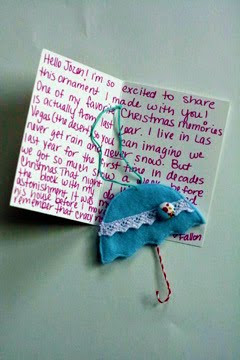 Hello Jocen! I'm so excited to share
this ornament I made with you!
One of my favorite Christmas memories
is actually from last year. I live in Las
Vegas (the desert) you can imagine we
never get rain and never snow. But
last year for the first time in decades
we got so much snow a week before
Christmas That night
the block with my
astonishment. It was
his house before I
remember that crazy
Fallon